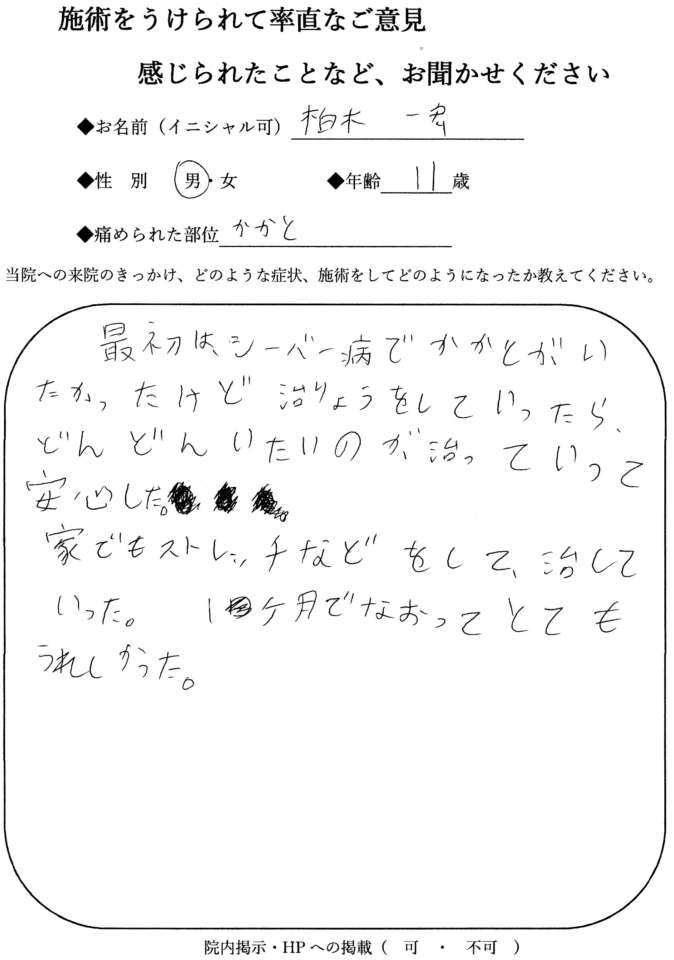 施術をうけられて率直なご意見
感じられたことなど、お聞かせください
◆お名前（イニシャル可） 柏木 一
◆性 別 男・女 ◆年齢 11 歳
◆痛められた部位 かかと
当院への来院のきっかけ、どのような症状、施術をしてどのようになったか教えてください。
最初は、シーバー病でかかとがい
たかったけど治りょうをしていったら、
どんどんいたいのが治っていって
安心した。
家でもストレッチなどをして、治して
いった。 1ケ月でなおってとても
うれしかった。
院内掲示・HPへの掲載（ 可 ・ 不可 ）